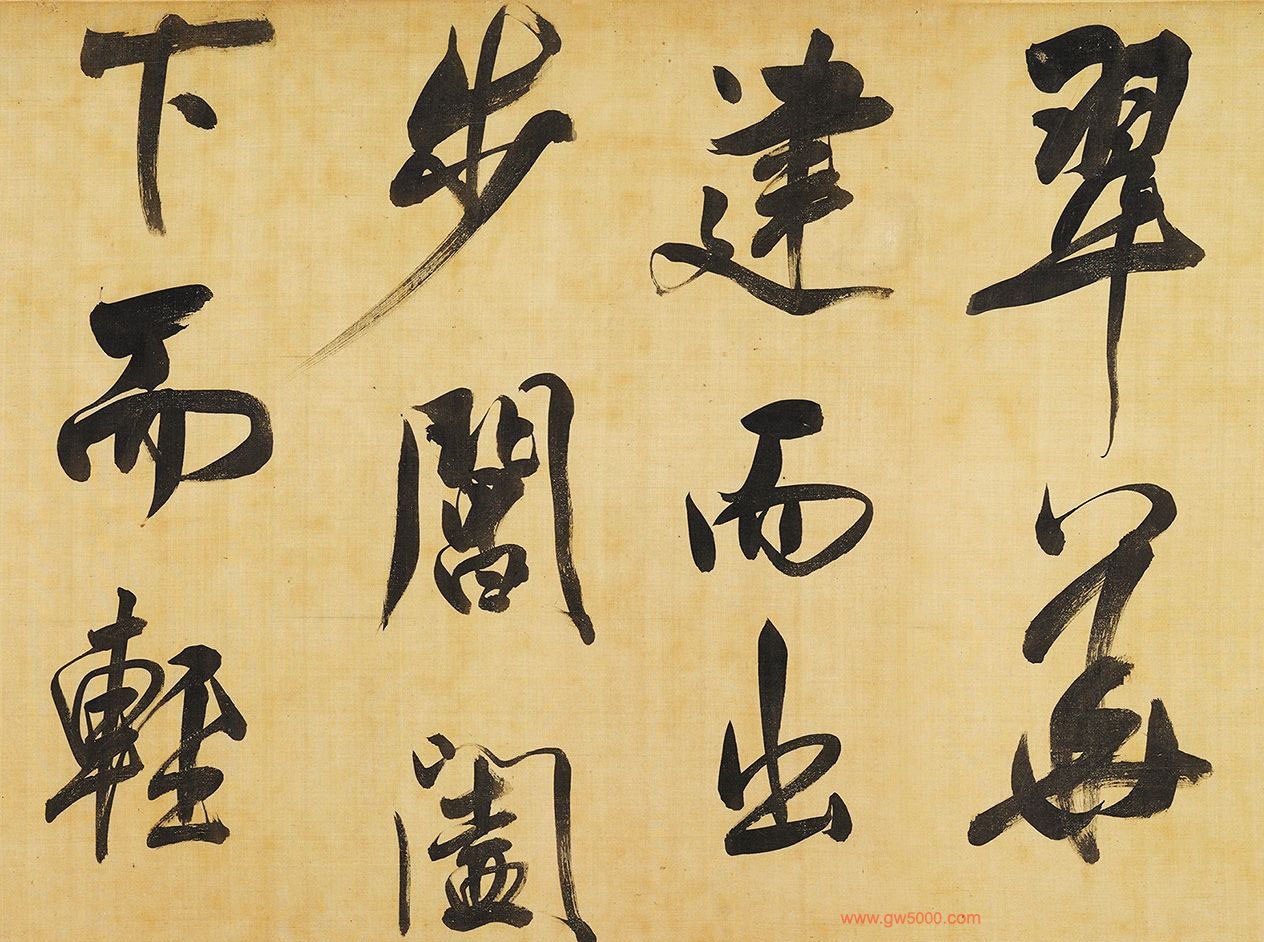 翠華
建而出
步閶闔
下而輕
www.gw5000.com